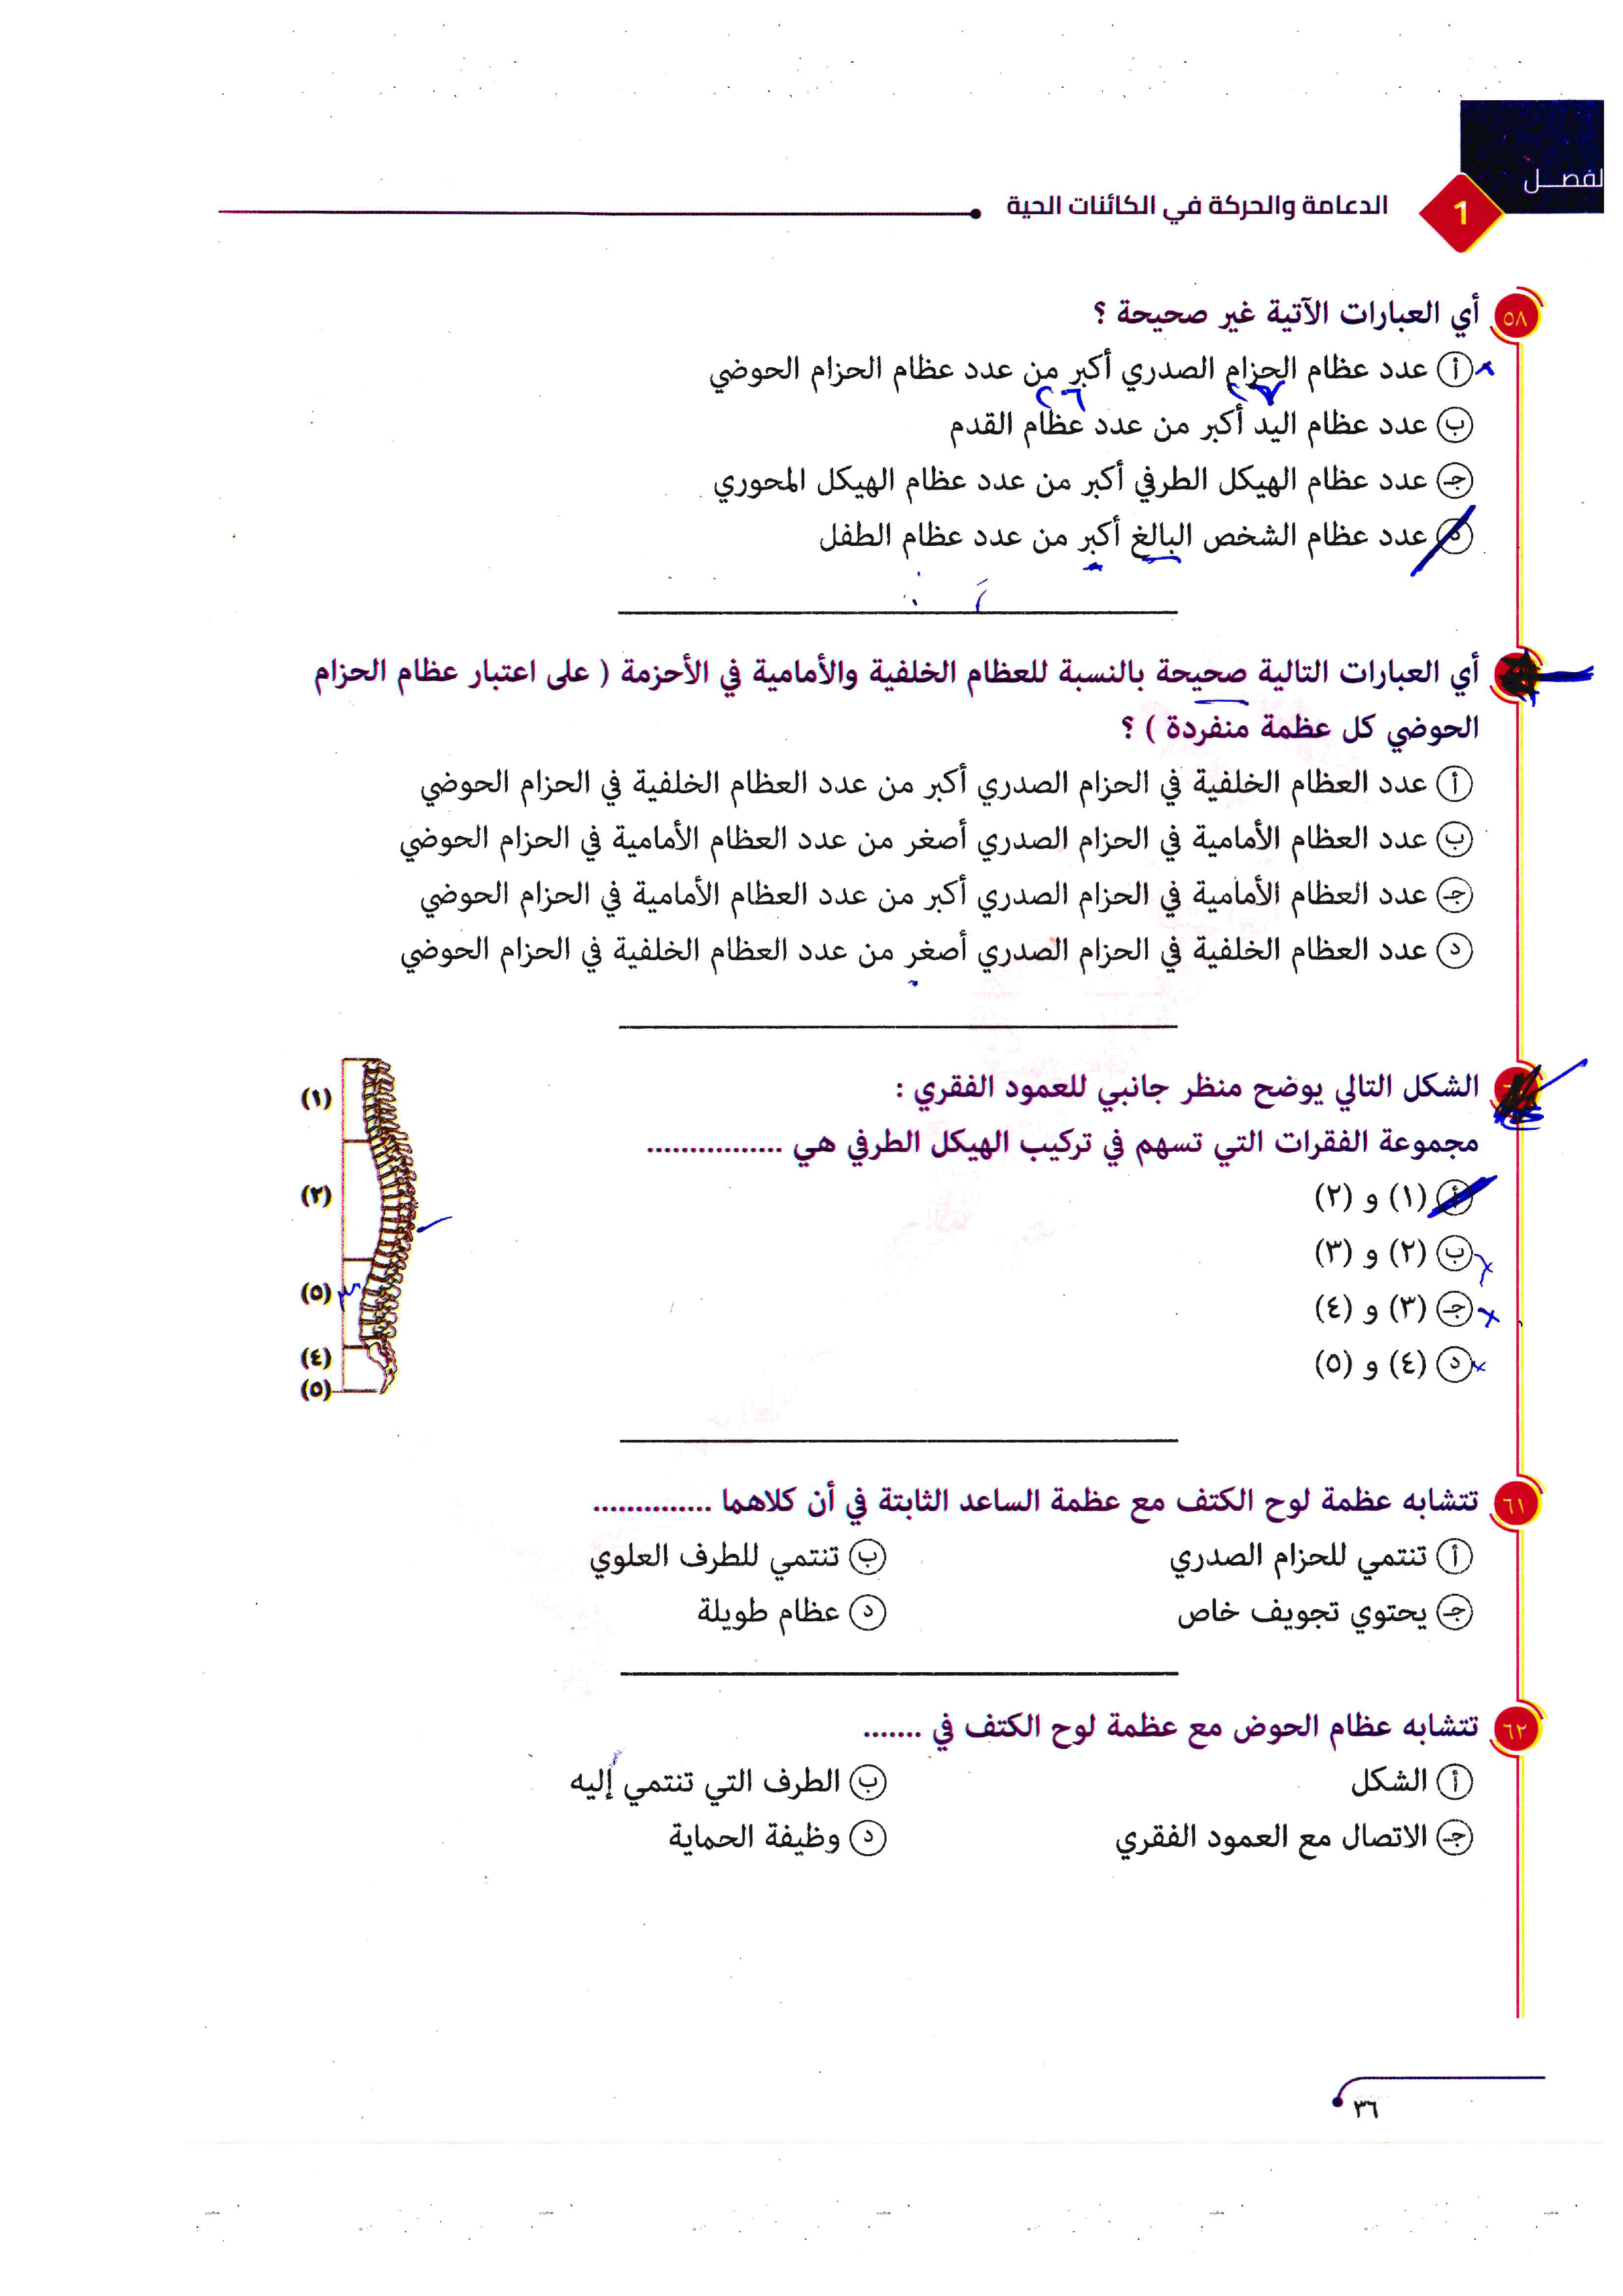 لفصل
1
الدعامة والحركة في الكائنات الحية
٥٨ أي العبارات الآتية غير صحيحة ؟
أ عدد عظام الحزام الصدري أكبر من عدد عظام الحزام الحوضي
٢٧ ٢٦
ب عدد عظام اليد أكبر من عدد عظام القدم
جـ عدد عظام الهيكل الطرفي أكبر من عدد عظام الهيكل المحوري
د عدد عظام الشخص البالغ أكبر من عدد عظام الطفل
أي العبارات التالية صحيحة بالنسبة للعظام الخلفية والأمامية في الأحزمة ( على اعتبار عظام الحزام
الحوضي كل عظمة منفردة ) ؟
أ عدد العظام الخلفية في الحزام الصدري أكبر من عدد العظام الخلفية في الحزام الحوضي
ب عدد العظام الأمامية في الحزام الصدري أصغر من عدد العظام الأمامية في الحزام الحوضي
جـ عدد العظام الأمامية في الحزام الصدري أكبر من عدد العظام الأمامية في الحزام الحوضي
د عدد العظام الخلفية في الحزام الصدري أصغر من عدد العظام الخلفية في الحزام الحوضي
الشكل التالي يوضح منظر جانبي للعمود الفقري :
مجموعة الفقرات التي تسهم في تركيب الهيكل الطرفي هي ................
أ (١) و (٢)
ب (٢) و (٣)
جـ (٣) و (٤)
د (٤) و (٥)
(١)
(٢)
(٥) ٣
(٤)
(٥)
٦١ تتشابه عظمة لوح الكتف مع عظمة الساعد الثابتة في أن كلاهما ..............
أ تنتمي للحزام الصدري ب تنتمي للطرف العلوي
جـ يحتوي تجويف خاص د عظام طويلة
٦٢ تتشابه عظام الحوض مع عظمة لوح الكتف في .......
أ الشكل ب الطرف التي تنتمي إليه
جـ الاتصال مع العمود الفقري د وظيفة الحماية
٣٦